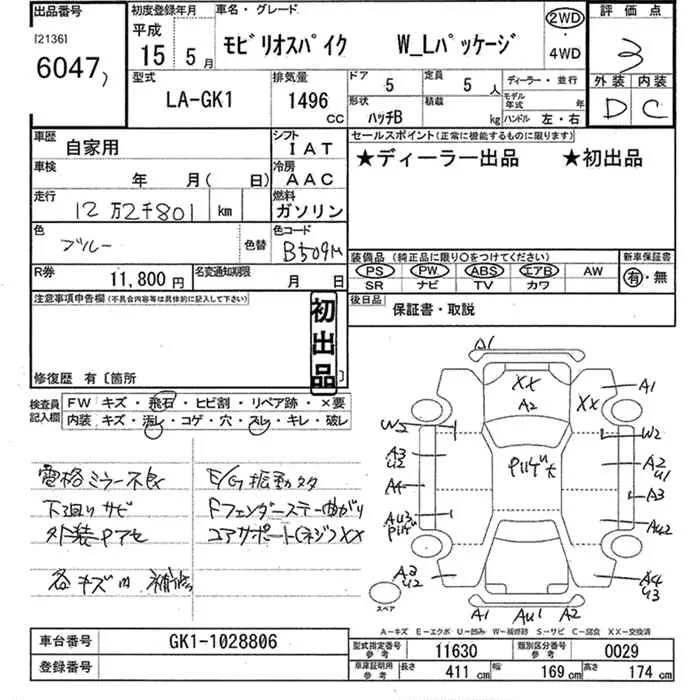 出品番号 初度登録年月 車名・グレード 評価点
[2136] 平成 2WD
6047 15 5月 モビリオスパイク W_Lパッケージ ・ 3
4WD
型式 排気量 ドア 5 定員 5人 ディーラー・並行 外装 内装
LA-GK1 1496 CC 形状 ハッチB 積載 kg モデル年式 年 D C
ハンドル 左・右
車歴 自家用 シフト IAT セールスポイント(正常に機能するものに限ります)
車検 年 月( 日) 冷房 AAC ★ディーラー出品 ★初出品
走行 12万2千801 km 燃料 ガソリン
色 ブルー 色替 色コード B509M
装備品 (純正品に限り○をつけてください) 新車保証書
PS PW ABS エアB AW 有・無
SR ナビ TV カワ
R券 11,800円 名変通知期限 月 日
後日品 保証書・取説
注意事項申告欄(不具合内容等は具体的に記入して下さい)
初出品
修復歴 有〔箇所
検査員記入欄 FW キズ・飛石・ヒビ割・リペア跡・×要
内装 キズ・汚レ・コゲ・穴・スレ・キレ・破レ
電格ミラー不良 E/G振動タタ
下廻りサビ Fフェンダーステー曲がり
外装Pアセ コアサポート(ネジ)XX
各キズ凹 補修
A1
XX A2 XX A1
W2 W2
A3 U2 A2 U1
A4 A3
AU3 AU2
A3 U2 A4 U3
スペア
A1 AU1 A2
A-キズ E-エクボ U-凹み W-補修跡 S-サビ C-腐食 XX-交換済
車台番号 GK1-1028806
型式指定番号 参考 11630 類別区分番号 参考 0029
登録番号
車庫証明用 参考 長さ 411 cm 幅 169 cm 高さ 174 cm